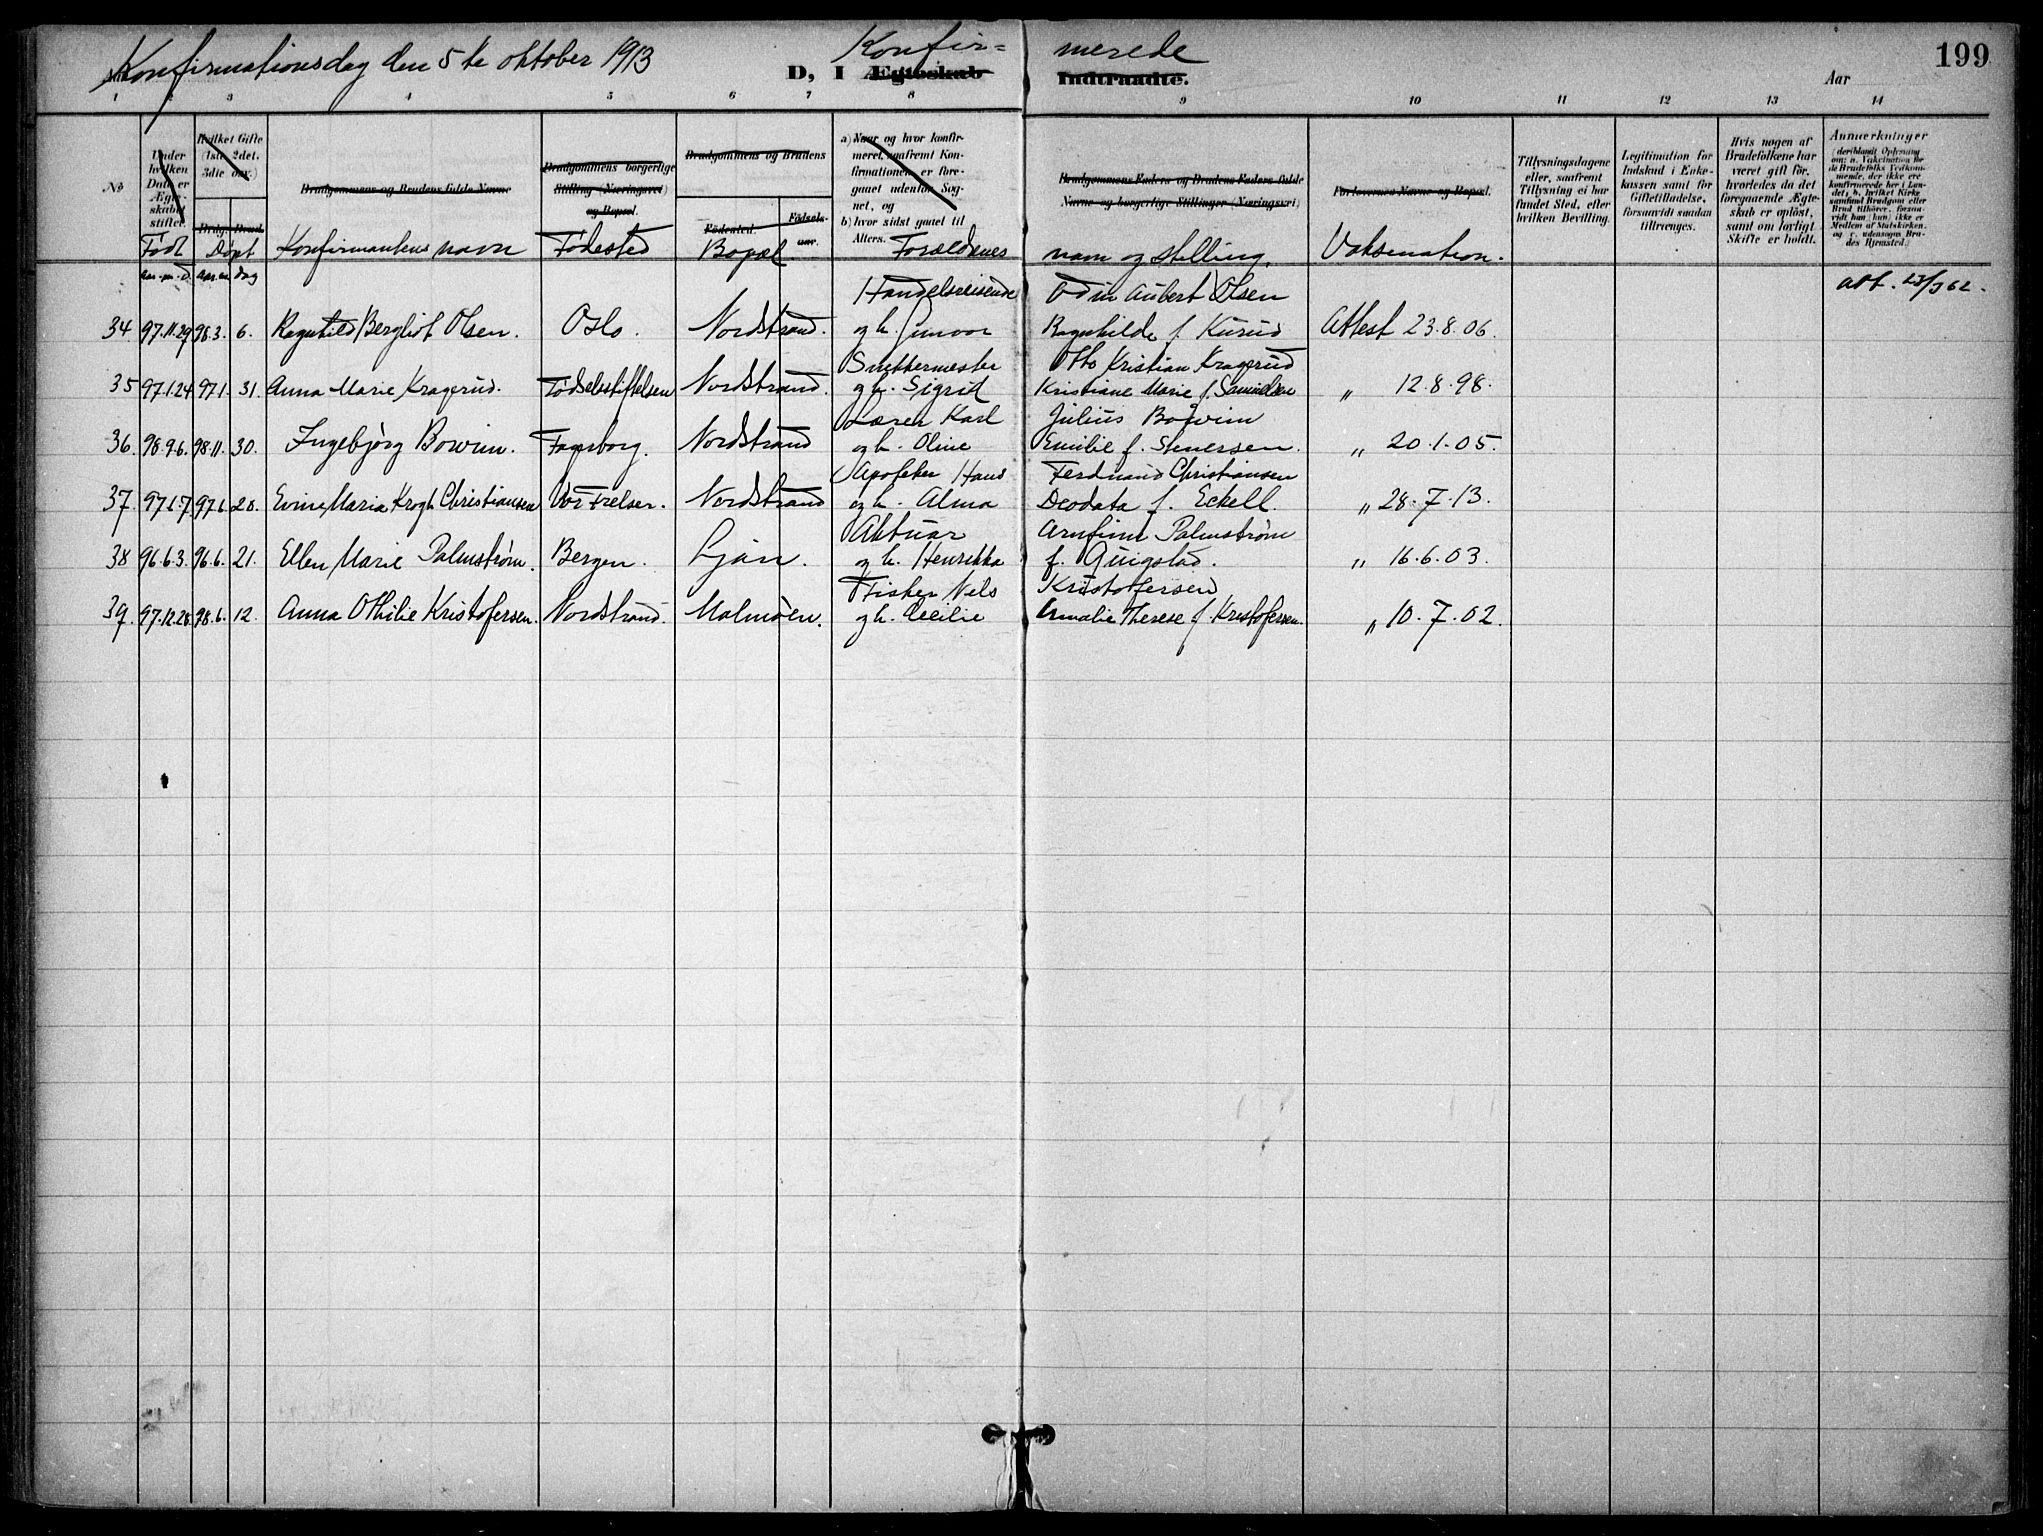 Konfirmationsdag den 5te oktober 1913
Konfir=
merede
199
D, I Ægteskab
Indtraadte.
Aar
1 2 3 4 5 6 7 8 9 10 11 12 13 14
No
Under hvilken Dato er Ægteskabet stiftet.
Hvilket Gifte (1ste, 2det, 3die osv.)
Brudg. Brud.
Brudgommens og Brudens fulde Navne
Brudgommens borgerlige Stilling (Næringsvei) og Bopæl.
Brudgommens og Brudens
Fødested. Fødsels-aar.
a) Naar og hvor konfirmeret, saafremt Konfirmationen er foregaaet udenfor Sognet, og
b) hvor sidst gaaet til Alters.
Brudgommens Faders og Brudens Faders fulde Navne og borgerlige Stillinger (Næringsvei)
Forlovernes Navne og Bopæl.
Tillysningsdagene eller, saafremt Tillysning ei har fundet Sted, eller hvilken Bevilling.
Legitimation for Indskud i Enkekassen samt for Giftetilladelse, forsaavidt saadan tiltrænges.
Hvis nogen af Brudefolkene har været gift før, hvorledes da det foregaaende Ægteskab er opløst, samt om lovligt Skifte er holdt.
Anmærkninger (deriblandt Oplysning om: a. Vakcination for de Brudefolks Vedkommende, der ikke ere konfirmerede her i Landet, b. hvilket Kirkesamfund Brudgom eller Brud tilhører, forsaavidt han (hun) ikke er Medlem af Statskirken, og c. udensogns Brudes Hjemsted.)
Født Døpt Konfirmantens navn Fødested Bopæl Forældrenes navn og stilling. Vaksination.
aar. m. d. aar. m. dag
Handelsreisende Odin Aubert Olsen att. 23/3 62.
34 97.11.29 98.3. 6. Ragnhild Bergliot Olsen. Oslo. Nordstrand. og h. Gunvor Ragnhilde f. Kurud Attest 23.8.06.
Snekkermester Otto Kristian Kragerud
35 97.1.24 97.1. 31. Anna Marie Kragerud. Fødselsstiftelsen Nordstrand. og h. Sigrid Kristiane Marie f. Samuelsen " 12.8.98.
Lærer Karl Julius Bowim
36. 98.9.6. 98.11. 30. Ingebjørg Bowim. Fagerborg. Nordstrand og h. Oline Emilie f. Stenersen. " 20.1.05.
Apoteker Hans Ferdinand Christiansen
37. 97.1.7. 97.6. 20. Maria Krogh Christiansen Vor Frelser. Nordstrand og h. Alma Deodata f. Eckell. " 28.7.13.
Aktuar Arnfinn Palmstrøm
38 96.6.3. 96.6. 21. Ellen Marie Palmstrøm. Bergen. Ljan. og h. Henrikka f. Quigstad. " 16.6.03.
Fisker Nils Kristofersen
39. 97.12.28. 98.6. 12. Anna Othilie Kristofersen. Nordstrand. Malmøen. og h. Cecilie Amalie Therese f. Kristofersen. " 10.7.02.